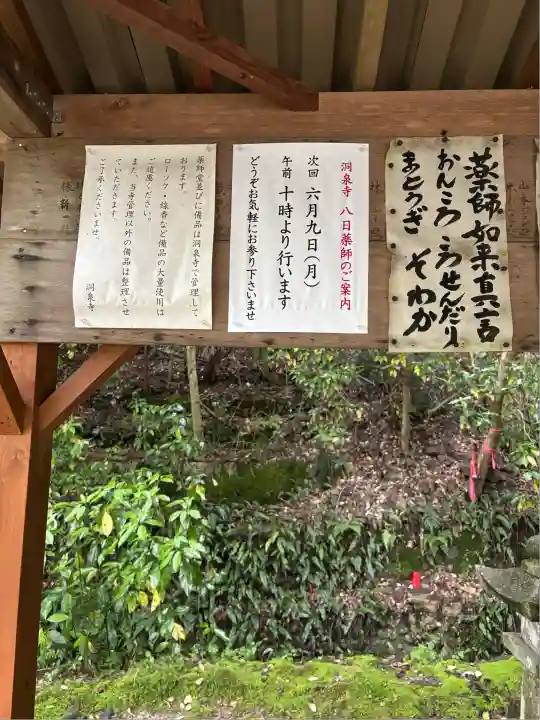 薬師如来真言
おんころころせんだり
まとうぎ そわか
洞泉寺 八日薬師のご案内
次回 六月九日(月)
午前 十時より行います
どうぞお気軽にお参り下さいませ
薬師堂並びに備品は洞泉寺で管理して
おります。
ローソク・線香など備品の大量使用は
ご遠慮ください。
また、当寺管理以外の備品は整理させ
ていただきます。
ご了承くださいませ。
洞泉寺